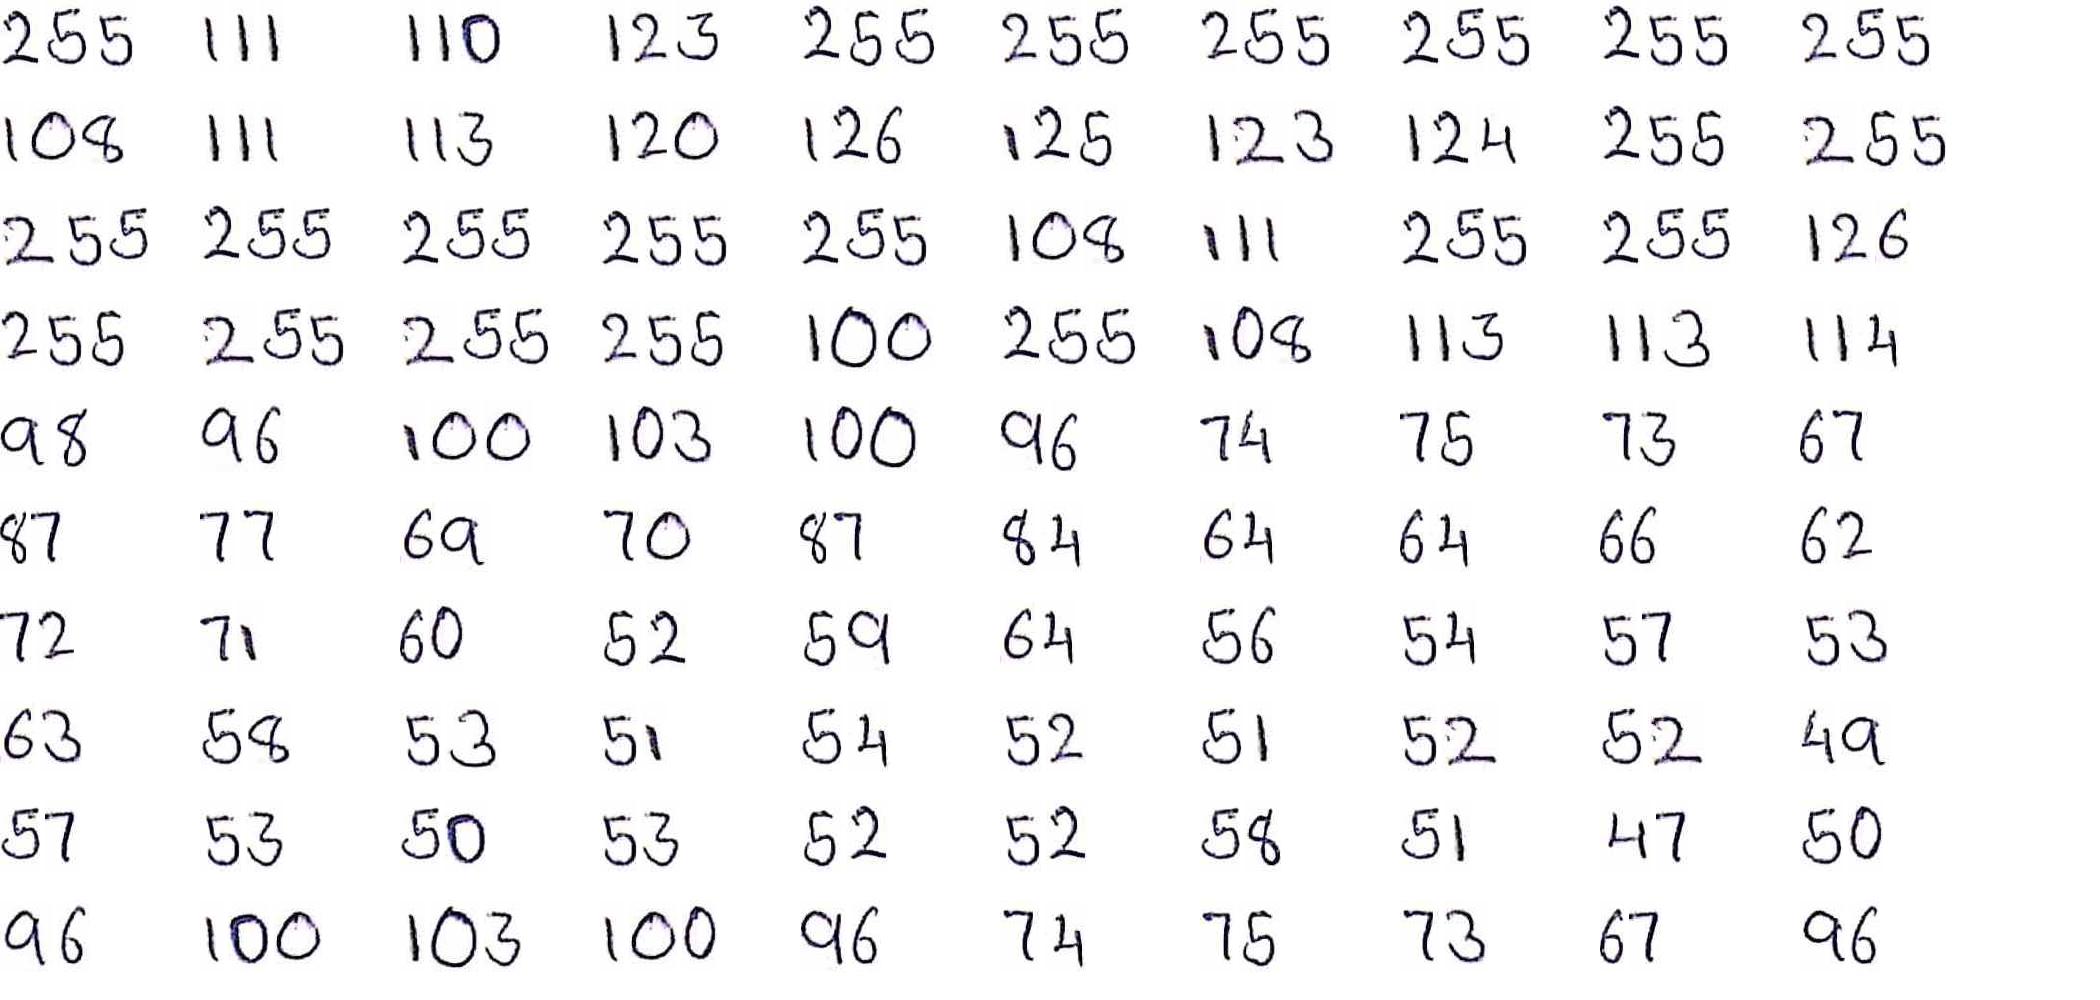 255 111 110 123 255 255 255 255 255 255
108 111 113 120 126 125 123 124 255 255
255 255 255 255 255 108 111 255 255 126
255 255 255 255 100 255 108 113 113 114
98 96 100 103 100 96 74 75 73 67
87 77 69 70 87 84 64 64 66 62
72 71 60 52 59 64 56 54 57 53
63 58 53 51 54 52 51 52 52 49
57 53 50 53 52 52 58 51 47 50
96 100 103 100 96 74 75 73 67 96